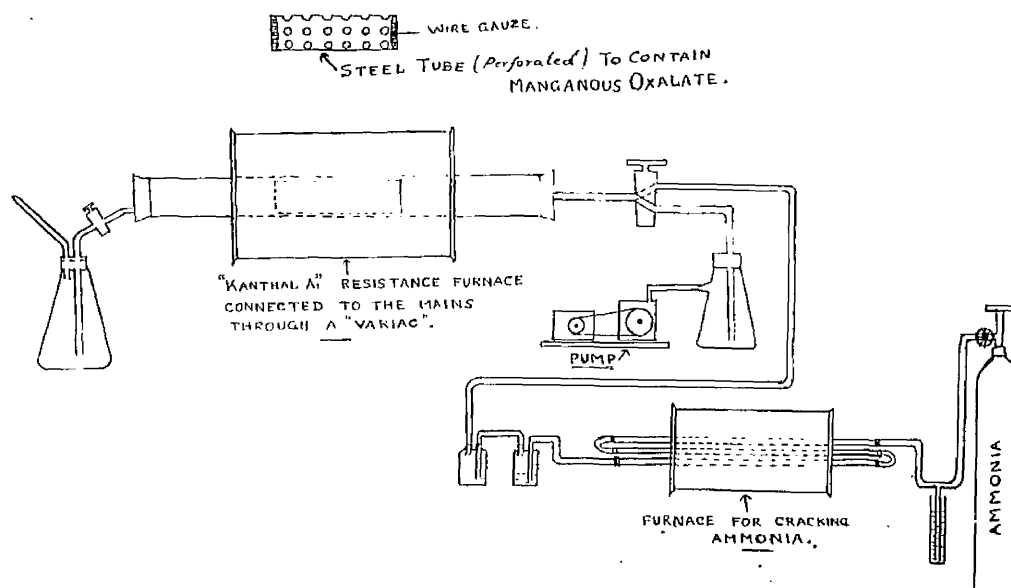 WIRE GAUZE.
STEEL TUBE (Perforated) TO CONTAIN
MANGANOUS OXALATE.
"KANTHAL A1" RESISTANCE FURNACE
CONNECTED TO THE MAINS
THROUGH A "VARIAC".
PUMP
FURNACE FOR CRACKING
AMMONIA.
AMMONIA